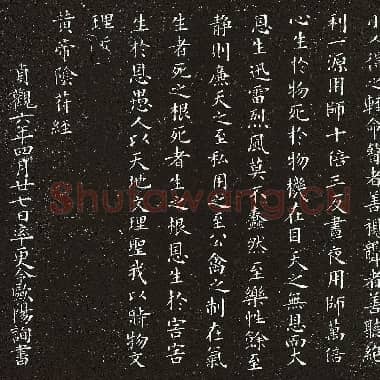 小人得之輕命瞽者善視聾者善聽絕
利一源用師十倍三反晝夜用師萬倍
心生於物死於物機在目天之無恩而大
恩生迅雷烈風莫不蠢然至樂性餘至
静則廉天之至私用之至公禽之制在氣
生者死之根死者生之根恩生於害害
生於恩愚人以天地文理聖我以時物文
理哲
黄帝陰符經
貞觀六年四月廿七日率更令歐陽詢書
Shufawang.CN